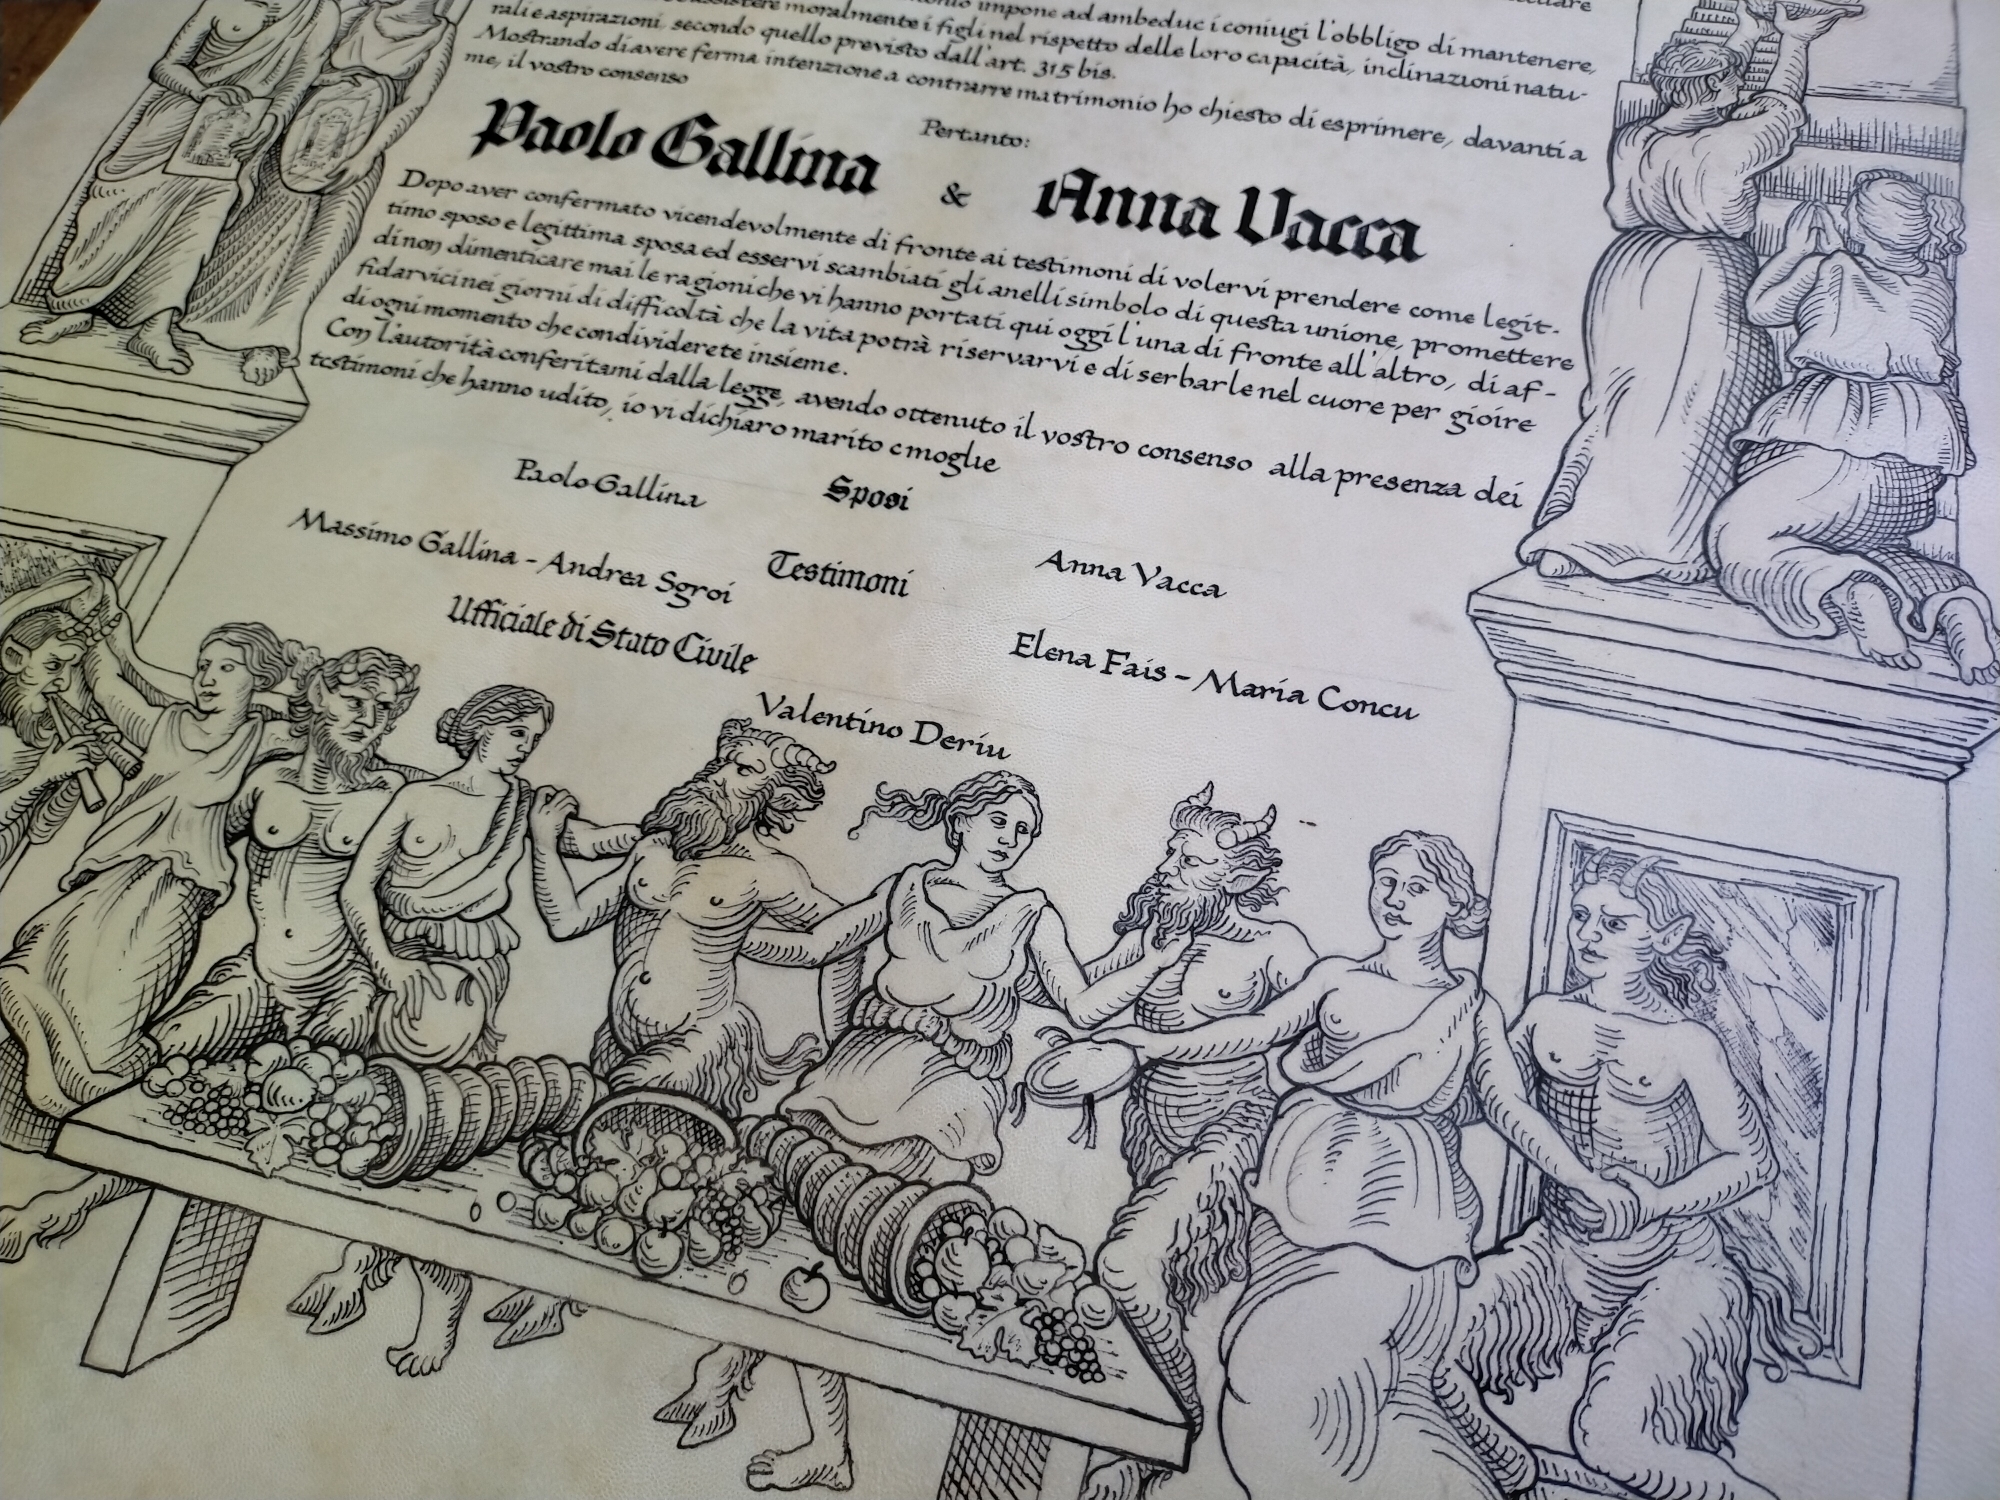 assistere moralmente i figli nel rispetto delle loro capacità, inclinazioni natu-
rali e aspirazioni, secondo quello previsto dall'art. 315 bis.
Mostrando di avere ferma intenzione a contrarre matrimonio ho chiesto di esprimere, davanti a
me, il vostro consenso
Pertanto:
Paolo Gallina & Anna Vacca
Dopo aver confermato vicendevolmente di fronte ai testimoni di volervi prendere come legit-
timo sposo e legittima sposa ed esservi scambiati gli anelli simbolo di questa unione, promettere
di non dimenticare mai le ragioni che vi hanno portati qui oggi l'una di fronte all'altro, di af-
fidarvici nei giorni di difficoltà che la vita potrà riservarvi e di serbarle nel cuore per gioire
di ogni momento che condividerete insieme.
Con l'autorità conferitami dalla legge, avendo ottenuto il vostro consenso alla presenza dei
testimoni che hanno udito, io vi dichiaro marito e moglie
Sposi
Paolo Gallina
Anna Vacca
Testimoni
Massimo Gallina - Andrea Sgroi
Elena Fais - Maria Concu
Ufficiale di Stato Civile
Valentino Deriu